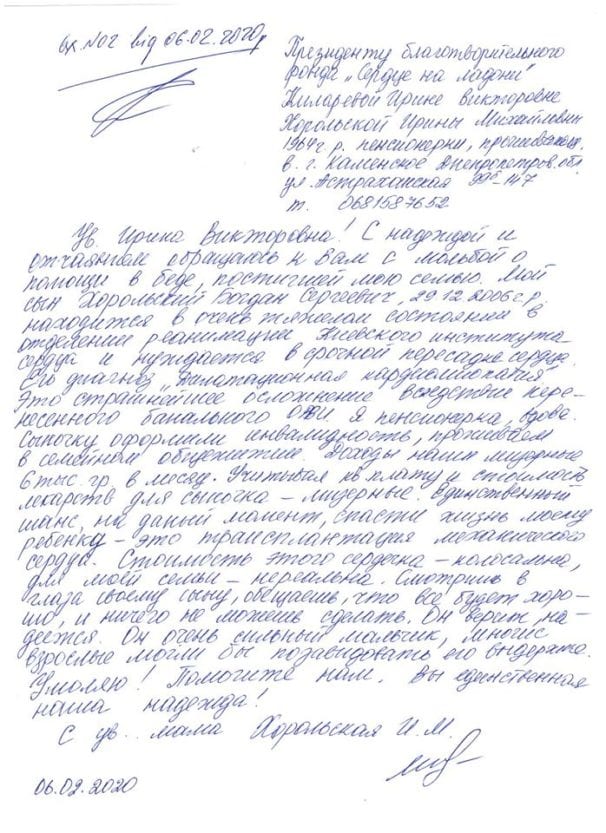 вх. №02 від 06.02.2020р
Президенту благотворительного
фонда „Сердце на ладони"
Киларевой Ирине Викторовне
Хорольской Ирины Михайловны
1964г.р. пенсионерки, проживающ.
в г. Каменское Днепропетров. обл
ул. Астраханская 147
т. 0681587652
Ув. Ирина Викторовна! С надеждой и
отчаянием обращаюсь к Вам с мольбой о
помощи в беде, постигшей мою семью. Мой
сын Хорольский Богдан Сергеевич, 29.12.2006г.р.
находится в очень тяжелом состоянии в
отделении реанимации Киевского института
сердца и нуждается в срочной пересадке сердца.
Его диагноз „Дилатационная кардиомиопатия"
Это страшнейшее осложнение вследствие пере-
несенного банального ОРВИ. Я пенсионерка, вдова.
Сыночку оформили инвалидность, проживаем
в семейном общежитие. Доходы наши мизерные
6 тыс. гр. в месяц. Учитывая кв плату и стоимость
лекарств для сыночка – мизерные. Единственный
шанс, на данный момент, спасти жизнь моему
ребенку – это трансплантация механического
сердца. Стоимость этого сердечка – колосальна,
для моей семьи – нереальна. Смотришь в
глаза своему сыну, обещаешь, что все будет хоро-
шо, и ничего не можешь сделать. Он верит, на-
деется. Он очень сильный мальчик, многие
взрослые могли бы позавидовать его выдержке.
Умоляю! Помогите нам. Вы единственная
наша надежда!
С ув. мама Хорольская И.М.
06.02.2020